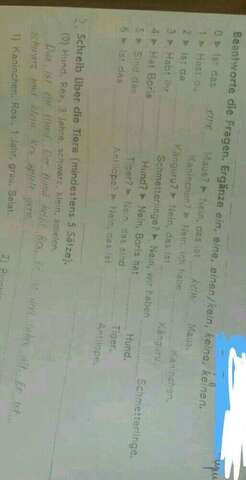 Beantworte die Fragen. Ergänze ein, eine, einen/kein, keine, keinen.
0 ► Ist das eine Maus? ► Nein, das ist keine Maus.
1 ► Hast du Kaninchen? ► Nein, ich habe Kaninchen.
2 ► Ist das Känguru? ► Nein, das ist Känguru.
3 ► Habt ihr Schmetterlinge? ► Nein, wir haben Schmetterlinge.
4 ► Hat Boris Hund? ► Nein, Boris hat Hund.
5 ► Sind das Tiger? ► Nein, das sind Tiger.
6 ► Ist das Antilope? ► Nein, das ist Antilope.
2. Schreib über die Tiere (mindestens 5 Sätze).
(0) Hund, Rex, 3 Jahre, schwarz, klein, spielen.
Das ist der Hund. Der Hund heißt Rex. Er ist drei Jahre alt. Er ist
schwarz und klein. Rex spielt gern.
1) Kaninchen, Rosi, 1 Jahr, grau, Salat.